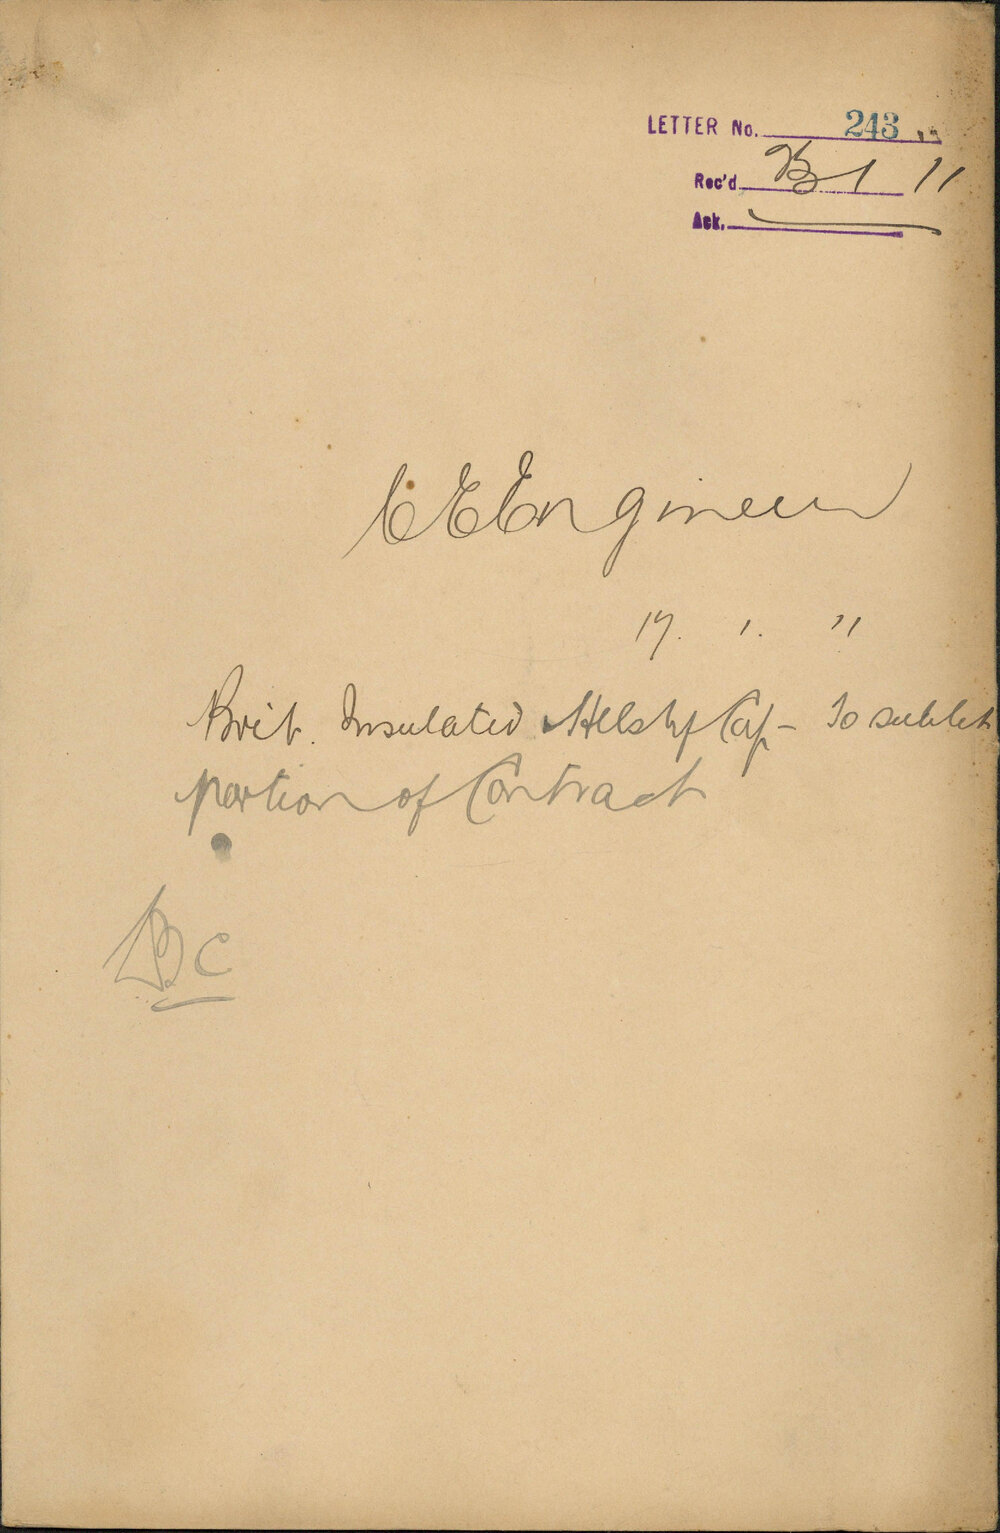 LETTER No. 243
Rec'd 1 11
Ack.
C E Engineer
17. 1. 11
Brit. Insulated Helsby Ca - To sublet
portion of Contract
C